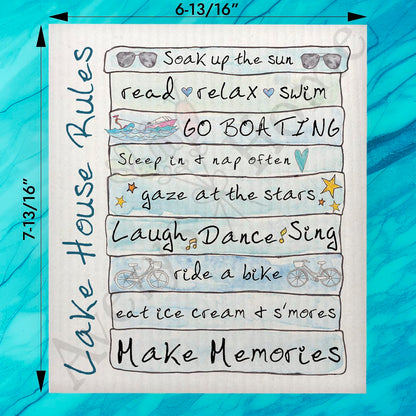 6-13/16"
7-13/16"
Lake House Rules
Soak up the sun
read relax swim
GO BOATING
Sleep in & nap often
gaze at the stars
Laugh Dance Sing
ride a bike
eat ice cream & s'mores
Make Memories